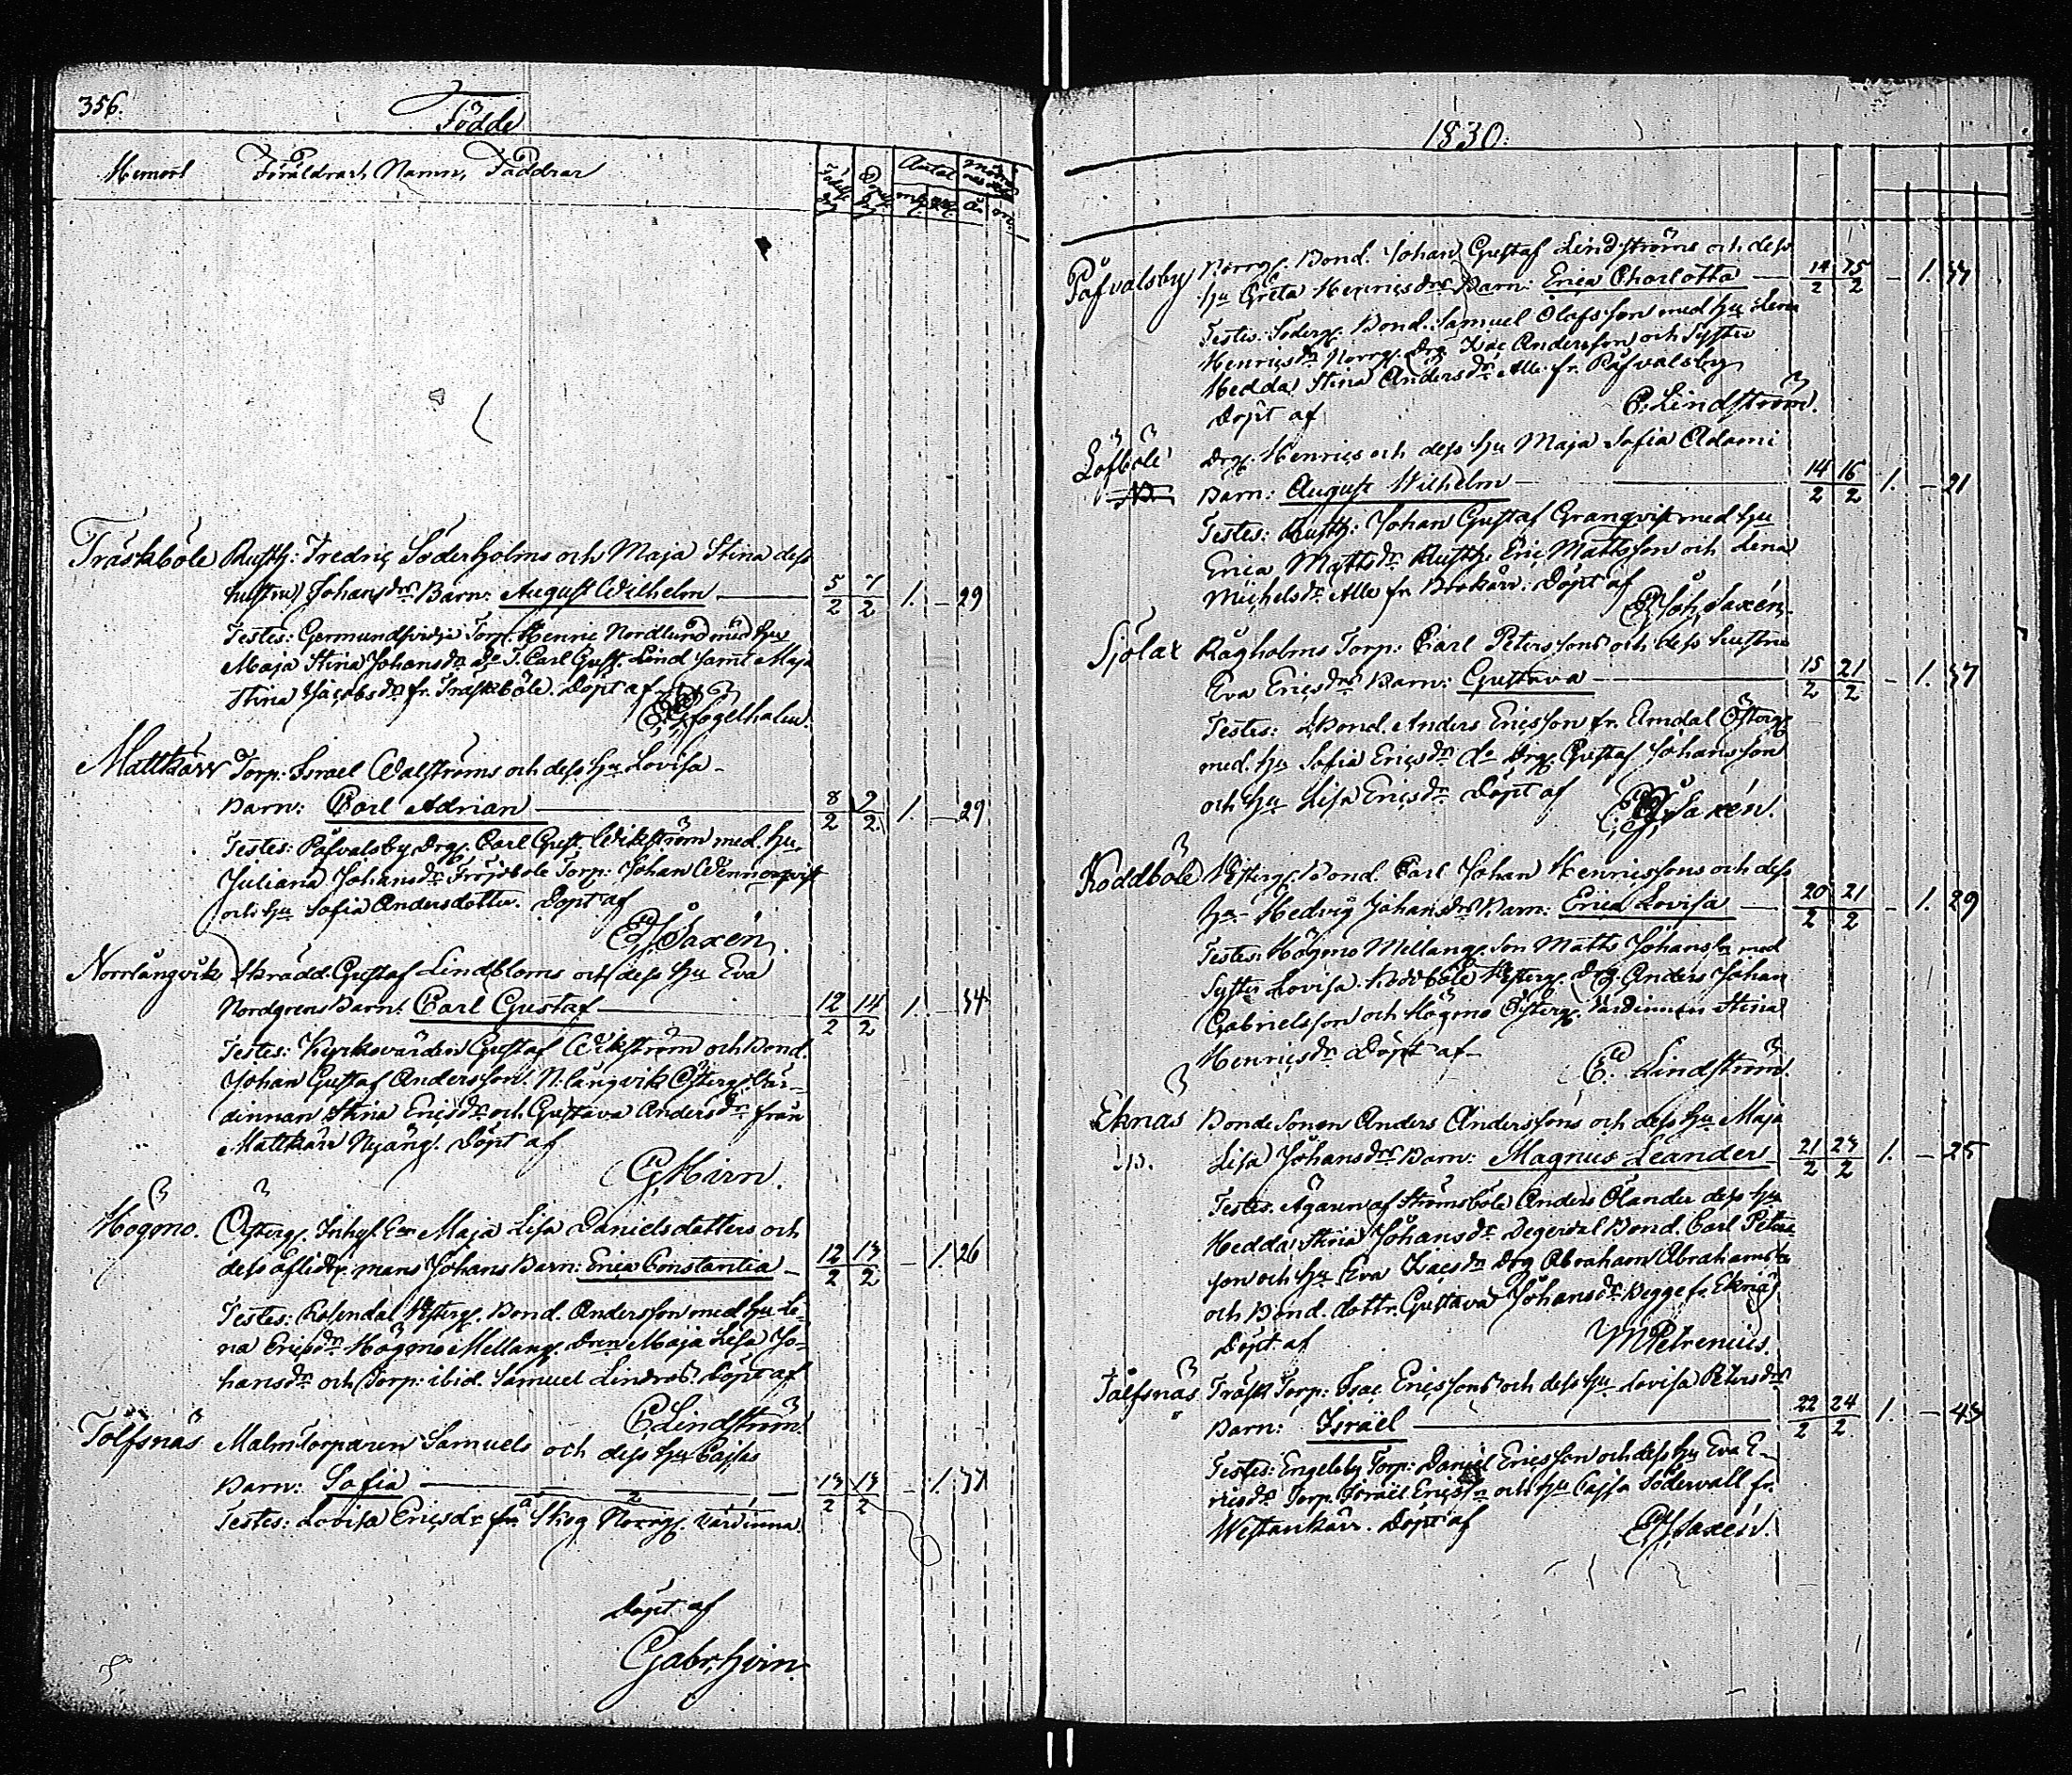 356.
Födde
Hemort Föräldrar, Namn, Faddrar
Födelse Döpelse Antal
mk. qk. år
Träskböle Rusth: Fredric Söderholms och Maja Stina dess
hustru Johansdrs Barn: August Wilhelm — 5/2 7/2 1. — 29
Testes: Germundsvidja Torp. Henric Nordlund med hu
Maja Stina Johansdr Do T. Carl Gust. Lind samt Maja
Stina Jacobsdr fr. Träskböle. Döpt af
Fogelholm.
Mattkärr Torp: Israel Walströms och dess hu Lovisa
Barn: Carl Adrian — 8/2 9/2 1. — 29
Testes: Påfvalsby Drg. Carl Gust. Wikström med hu
Juliana Johansdr Fröjdböle Torp: Johan Wennerqvist
och hu Sofia Andersdotter. Döpt af
Saxén.
Norrlångvik Skrädd. Gustaf Lindbloms och dess hu Eva
Nordgrens Barn: Carl Gustaf — 12/2 14/2 1. — 34
Testes: Kyrkovärden Gustaf Wikström och Bond.
Johan Gustaf Andersson. N. långvik Österg. Vär-
dinnan Stina Ericsdr och Gustava Andersdr från
Mattkärr Nygång. Döpt af
G. Hirn.
Högmo. Österg. Inhys. Enk. Maja Lisa Danielsdotters och
dess aflidne mans Johans Barn: Erica Constantia — 12/2 13/2 — 1. 26
Testes: Rosendal Westerg. Bond. Andersson med hu Le-
na Ericsdr Högmo Mellang. Dren Maja Lisa Jo-
hansdr och Torp: ibid. Samuel Lindros. Döpt af
C. Lindström.
Tölfsnäs Malm Torparen Samuels och dess hu Cajsas
Barn: Sofia — 13/2 13/2 — 1. 37
Testes: Lovisa Ericsdr från Skog Norrg. värdinna.
Döpt af
Gabr. Hirn.
1830.
Påfvalsby Norrg. Bond. Johan Gustaf Lindströms och dess
hu Greta Henricsdrs Barn: Erica Charlotta — 14/2 15/2 — 1. 37
Testes: Söderg. Bond. Samuel Olofsson med hu Lena
Henricsdr Norrg. Drg Isac Andersson och Syster
Hedda Stina Andersdr Alle fr. Påfvalsby
Döpt af C. Lindström.
Löfböle Drg. Henrics och dess hu Maja Sofia Adami
Barn: August Wilhelm — 14/2 16/2 1. — 21
Testes: Rusth: Johan Gustaf Granqvist med hu
Erica Mattsdr Rusth: Eric Mattsson och Lena
Michelsdr Alle fr Brokärr. Döpt af
Joh. Saxén.
Sjölax Rågholms Torp: Carl Peterssons och dess hustru
Eva Ericsdrs Barn: Gustava — 15/2 21/2 — 1. 37
Testes: Bond. Anders Ericsson fr. Emdal Österg
med hu Sofia Ericsdr do Drg. Gustaf Johansson
och hu Lisa Ericsdr Döpt af
Saxén.
Koddböle Westerg. Bond. Carl Johan Henricssons och dess
hu Hedvig Johansdrs Barn: Erica Lovisa — 20/2 21/2 — 1. 29
Testes: Högmo Mellang. Son Matts Johansson med
Syster Lovisa. Koddböle Westerg. Drg. Anders Johan
Gabrielsson och Högmo Österg. Värdinnan Stina
Henricsdr Döpt af
C. Lindström.
Eknäs Bonde Sonen Anders Anderssons och dess hu Maja
Lisa Johansdrs Barn: Magnus Leander — 21/2 23/2 1. — 25
Testes. Ägaren af Strömsböle Anders Ölander dess hu
Hedda Stina Johansdr Degerdal Bond. Carl Peters-
son och hu Eva Isacsdr Drg Abraham Abrahamsson
och Bond. dottr. Gustava Johansdr Begge fr. Eknäs
Döpt af M Petrenius.
Tölfsnäs Träsk Torp: Isac Ericssons och dess hu Lovisa Petersdrs
Barn: Israël — 22/2 24/2 1. — 43
Testes: Engelsby Torp: Daniel Ericsson och dess hu Eva E-
ricsdr Torp. Israël Ericsson och hu Cajsa Södervall fr.
Westankärr. Döpt af Saxén.